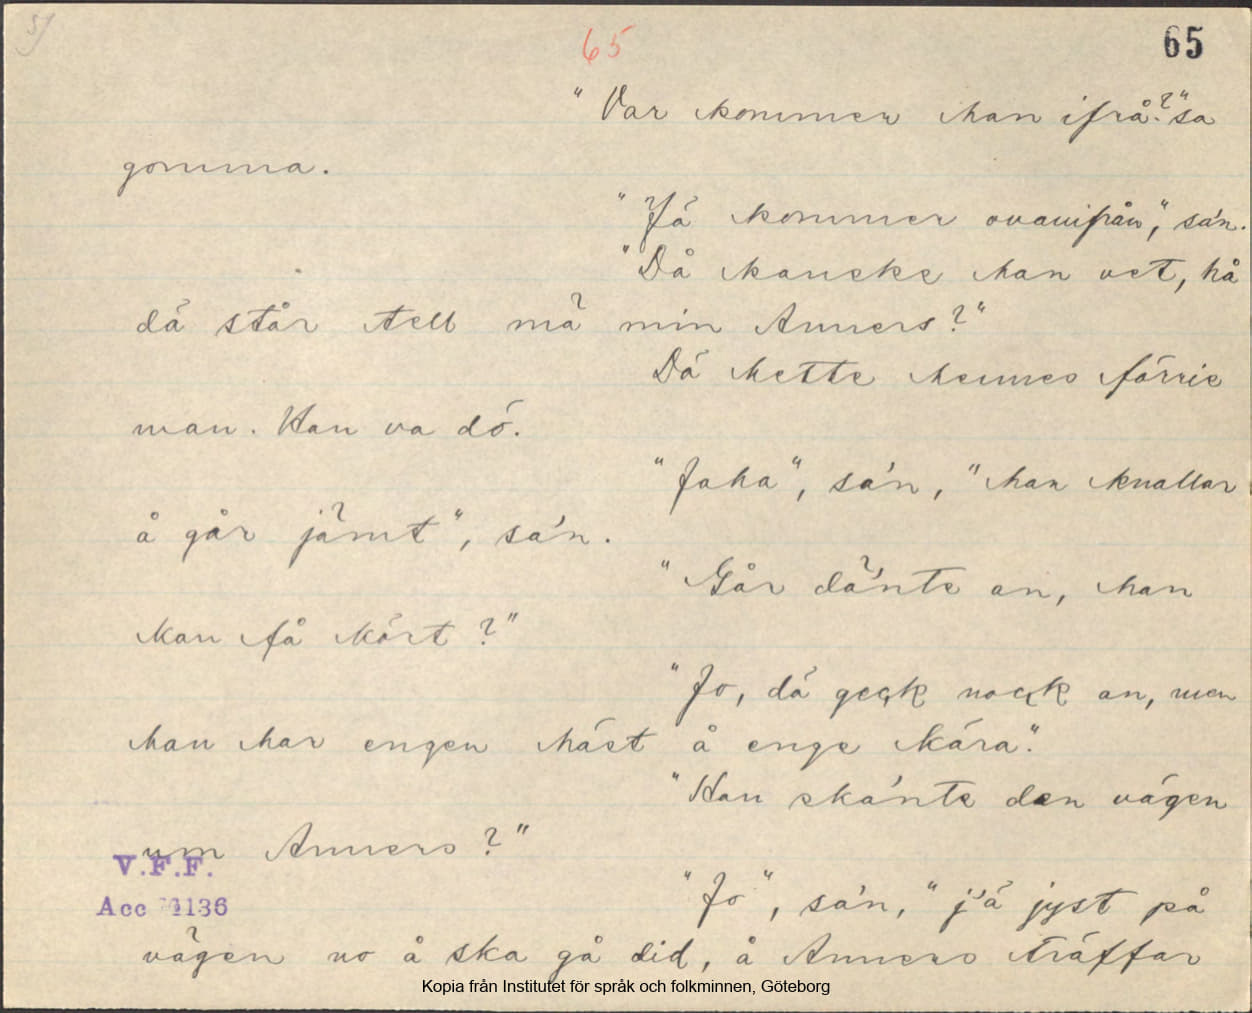 65 65
"Var kommer han ifrå?" sa
gomma.
"Jä kommer ovanifrån", sa'n.
"Då kanske han vet, hå
dä står tell mä min Anners?"
Dä hette hennes förrie
man. Han va dö.
"Jaha", sa'n, "han knallar
å går jämt", sa'n.
"Går dä'nte an, han
kan få kört?"
"Jo, dä geck nock an, men
han har engen häst å enge kära."
"Han ska'nte den vägen
um Anners?"
"Jo", sa'n, "j'ä jyst på
vägen no å ska gå did, å Anners träffar
V.F.F.
Acc 1136
Kopia från Institutet för språk och folkminnen, Göteborg